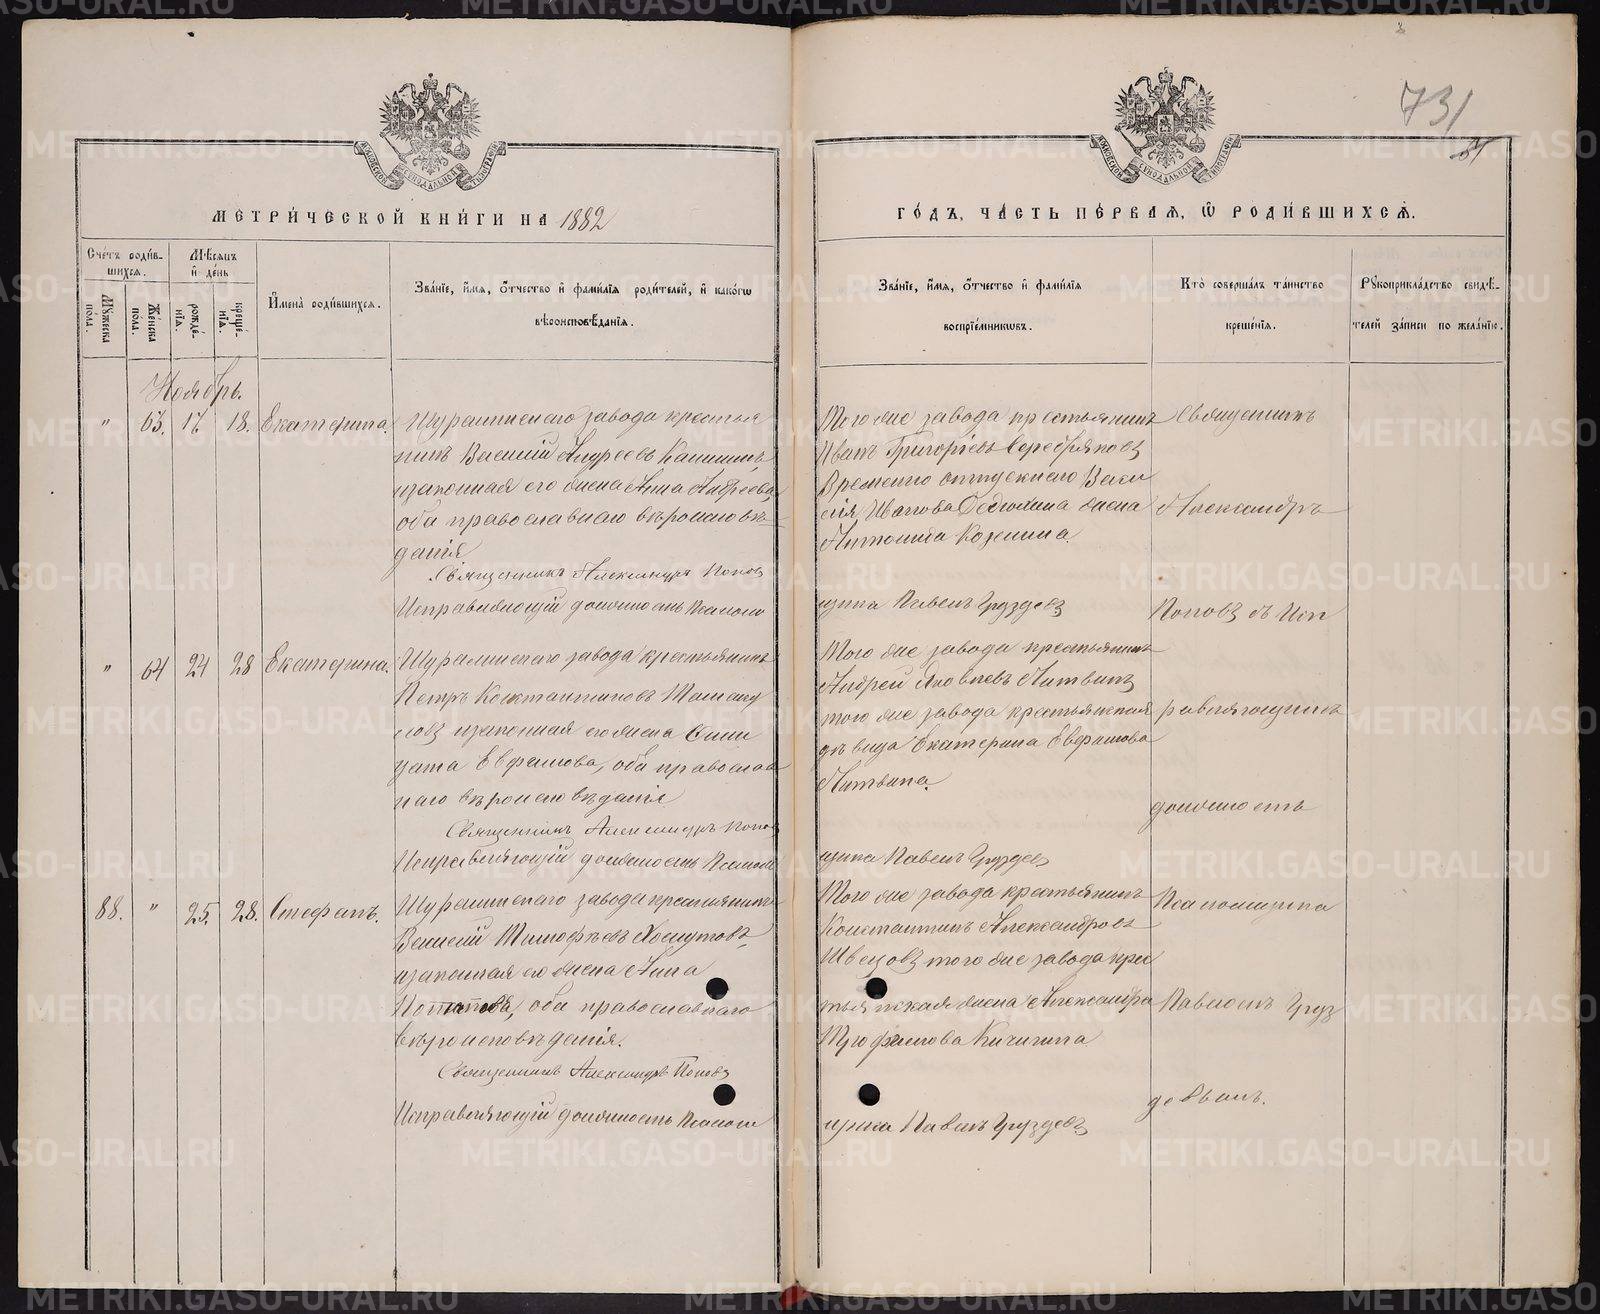 731
МЕТРИ́ЧЕСКОЙ КНИ́ГИ НА 1882
ГО́ДЪ, ЧА́СТЬ ПЕ́РВАЯ, Ѡ РОДИ́ВШИХСЯ.
Сче́тъ роди́вшихся.
Мꙋжеска по́ла.
Же́нска по́ла.
Мѣ́сяцъ и҆ де́нь
рожде́нїя.
креще́нїя.
И҆мена̀ роди́вшихся.
Зва́нїе, и҆́мя, ѻ҆́тчество и҆ фами́лїя роди́телей, и҆ како́гѡ
вѣроисповѣ́данїя.
Зва́нїе, и҆́мя, ѻ҆́тчество и҆ фами́лїя
воспрїе́мникѡвъ.
Кто̀ соверша́лъ та́инство
креще́нїя.
Рꙋкоприкла́дство свидѣ́телей за́писи по жела́нїю.
Ноябрь.
" 63. 17 18. Екатерина.
Шуралинскаго завода крестья
нинъ Василій Андреевъ
изаконная его жена Анна Андреева,
оба православнаго вѣроисповѣ
данія
Священникъ Александръ Поповъ
Исправляющій должность Псаломщика Павелъ Груздевъ
Того же завода крестьянинъ
Иванъ Григорьевъ Серебряковъ
Временно отпускнаго Васи
лія Иванова жена
Антонида Козмина.
" 64 24 28 Екатерина.
Шуралинскаго завода крестьянинъ
Петръ Константиновъ
изаконная его жена
Евфимова, оба православ
наго вѣроисповѣданія
Священникъ Александръ Попов
Исправляющій должность Псаломщика Павелъ Груздевъ
Того же завода крестьянинъ
Андрей Яковлевъ Литвинъ
того же завода крестьянская
дѣвица Екатерина Евфимова
Литвина.
88. " 25. 28. Стефанъ.
Шуралинскаго завода крестьянинъ
Василій Тимофѣевъ Хомутовъ,
изаконная его жена Анна
Потапова, оба православнаго
вѣроисповѣданія.
Священникъ Александръ Поповъ
Исправляющій должность Псаломщика Павелъ Груздевъ
Того же завода крестьянинъ
Константинъ Александровъ
Швецовъ того же завода крес
тьянская жена Александра
Трофимова Кичигина
Священникъ
Александръ
Поповъ съ Исп
равляющимъ
должность
Псаломщика
Павломъ Груз
девымъ.
METRIKI.GASO-URAL.RU